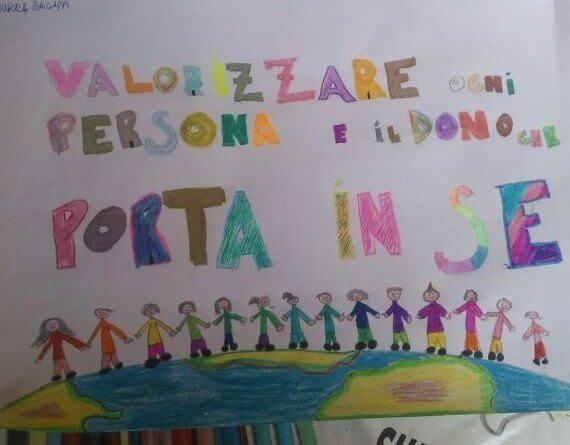 VALORIZZARE OGNI
PERSONA E IL DONO CHE
PORTA IN SE